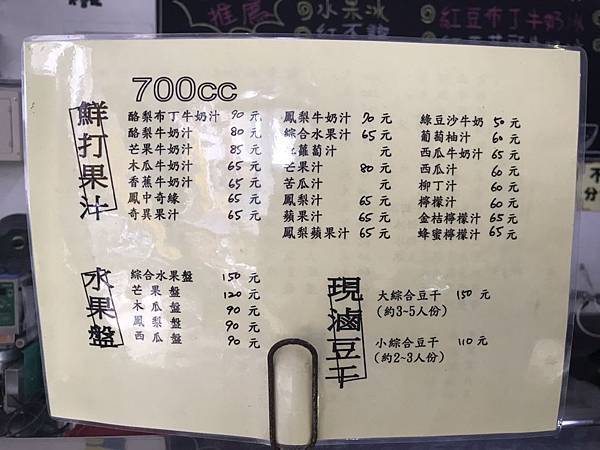 推薦
水果冰
紅豆布丁牛奶冰
700cc
鮮打果汁
酪梨布丁牛奶汁 90元
酪梨牛奶汁 80元
芒果牛奶汁 85元
木瓜牛奶汁 65元
香蕉牛奶汁 65元
鳳中奇緣 65元
奇異果汁 65元
鳳梨牛奶汁 70元
綜合水果汁 65元
蘿蔔汁 元
芒果汁 80元
苦瓜汁 元
鳳梨汁 65元
蘋果汁 65元
鳳梨蘋果汁 65元
綠豆沙牛奶 50元
葡萄柚汁 60元
西瓜牛奶汁 65元
西瓜汁 60元
柳丁汁 60元
檸檬汁 60元
金桔檸檬汁 65元
蜂蜜檸檬汁 65元
水果盤
綜合水果盤 150元
芒果盤 120元
木瓜盤 90元
鳳梨盤 90元
西瓜盤 90元
現滷豆干
大綜合豆干 150元
(約3~5人份)
小綜合豆干 110元
(約2~3人份)
不
分